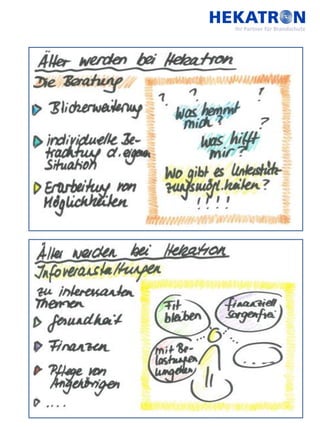 HEKATRON
Ihr Partner für Brandschutz
Älter werden bei Hekatron
Die Beratung
Blickerweiterung
individuelle Be-
trachtung d. eigenen
Situation
Erarbeitung von
Möglichkeiten
? ? ?
Was hemmt
mich?
?
Was hilft
mir?
Wo gibt es Unterstüt-
zungsmögl.keiten?
! ! ! !
Älter werden bei Hekatron
Infoveranstaltungen
zu interessanten
Themen
Gesundheit
Finanzen
Pflege von
Angehörigen
....
Fit
bleiben
Finanziell
sorgenfrei
mit Be-
lastungen
umgehen
....